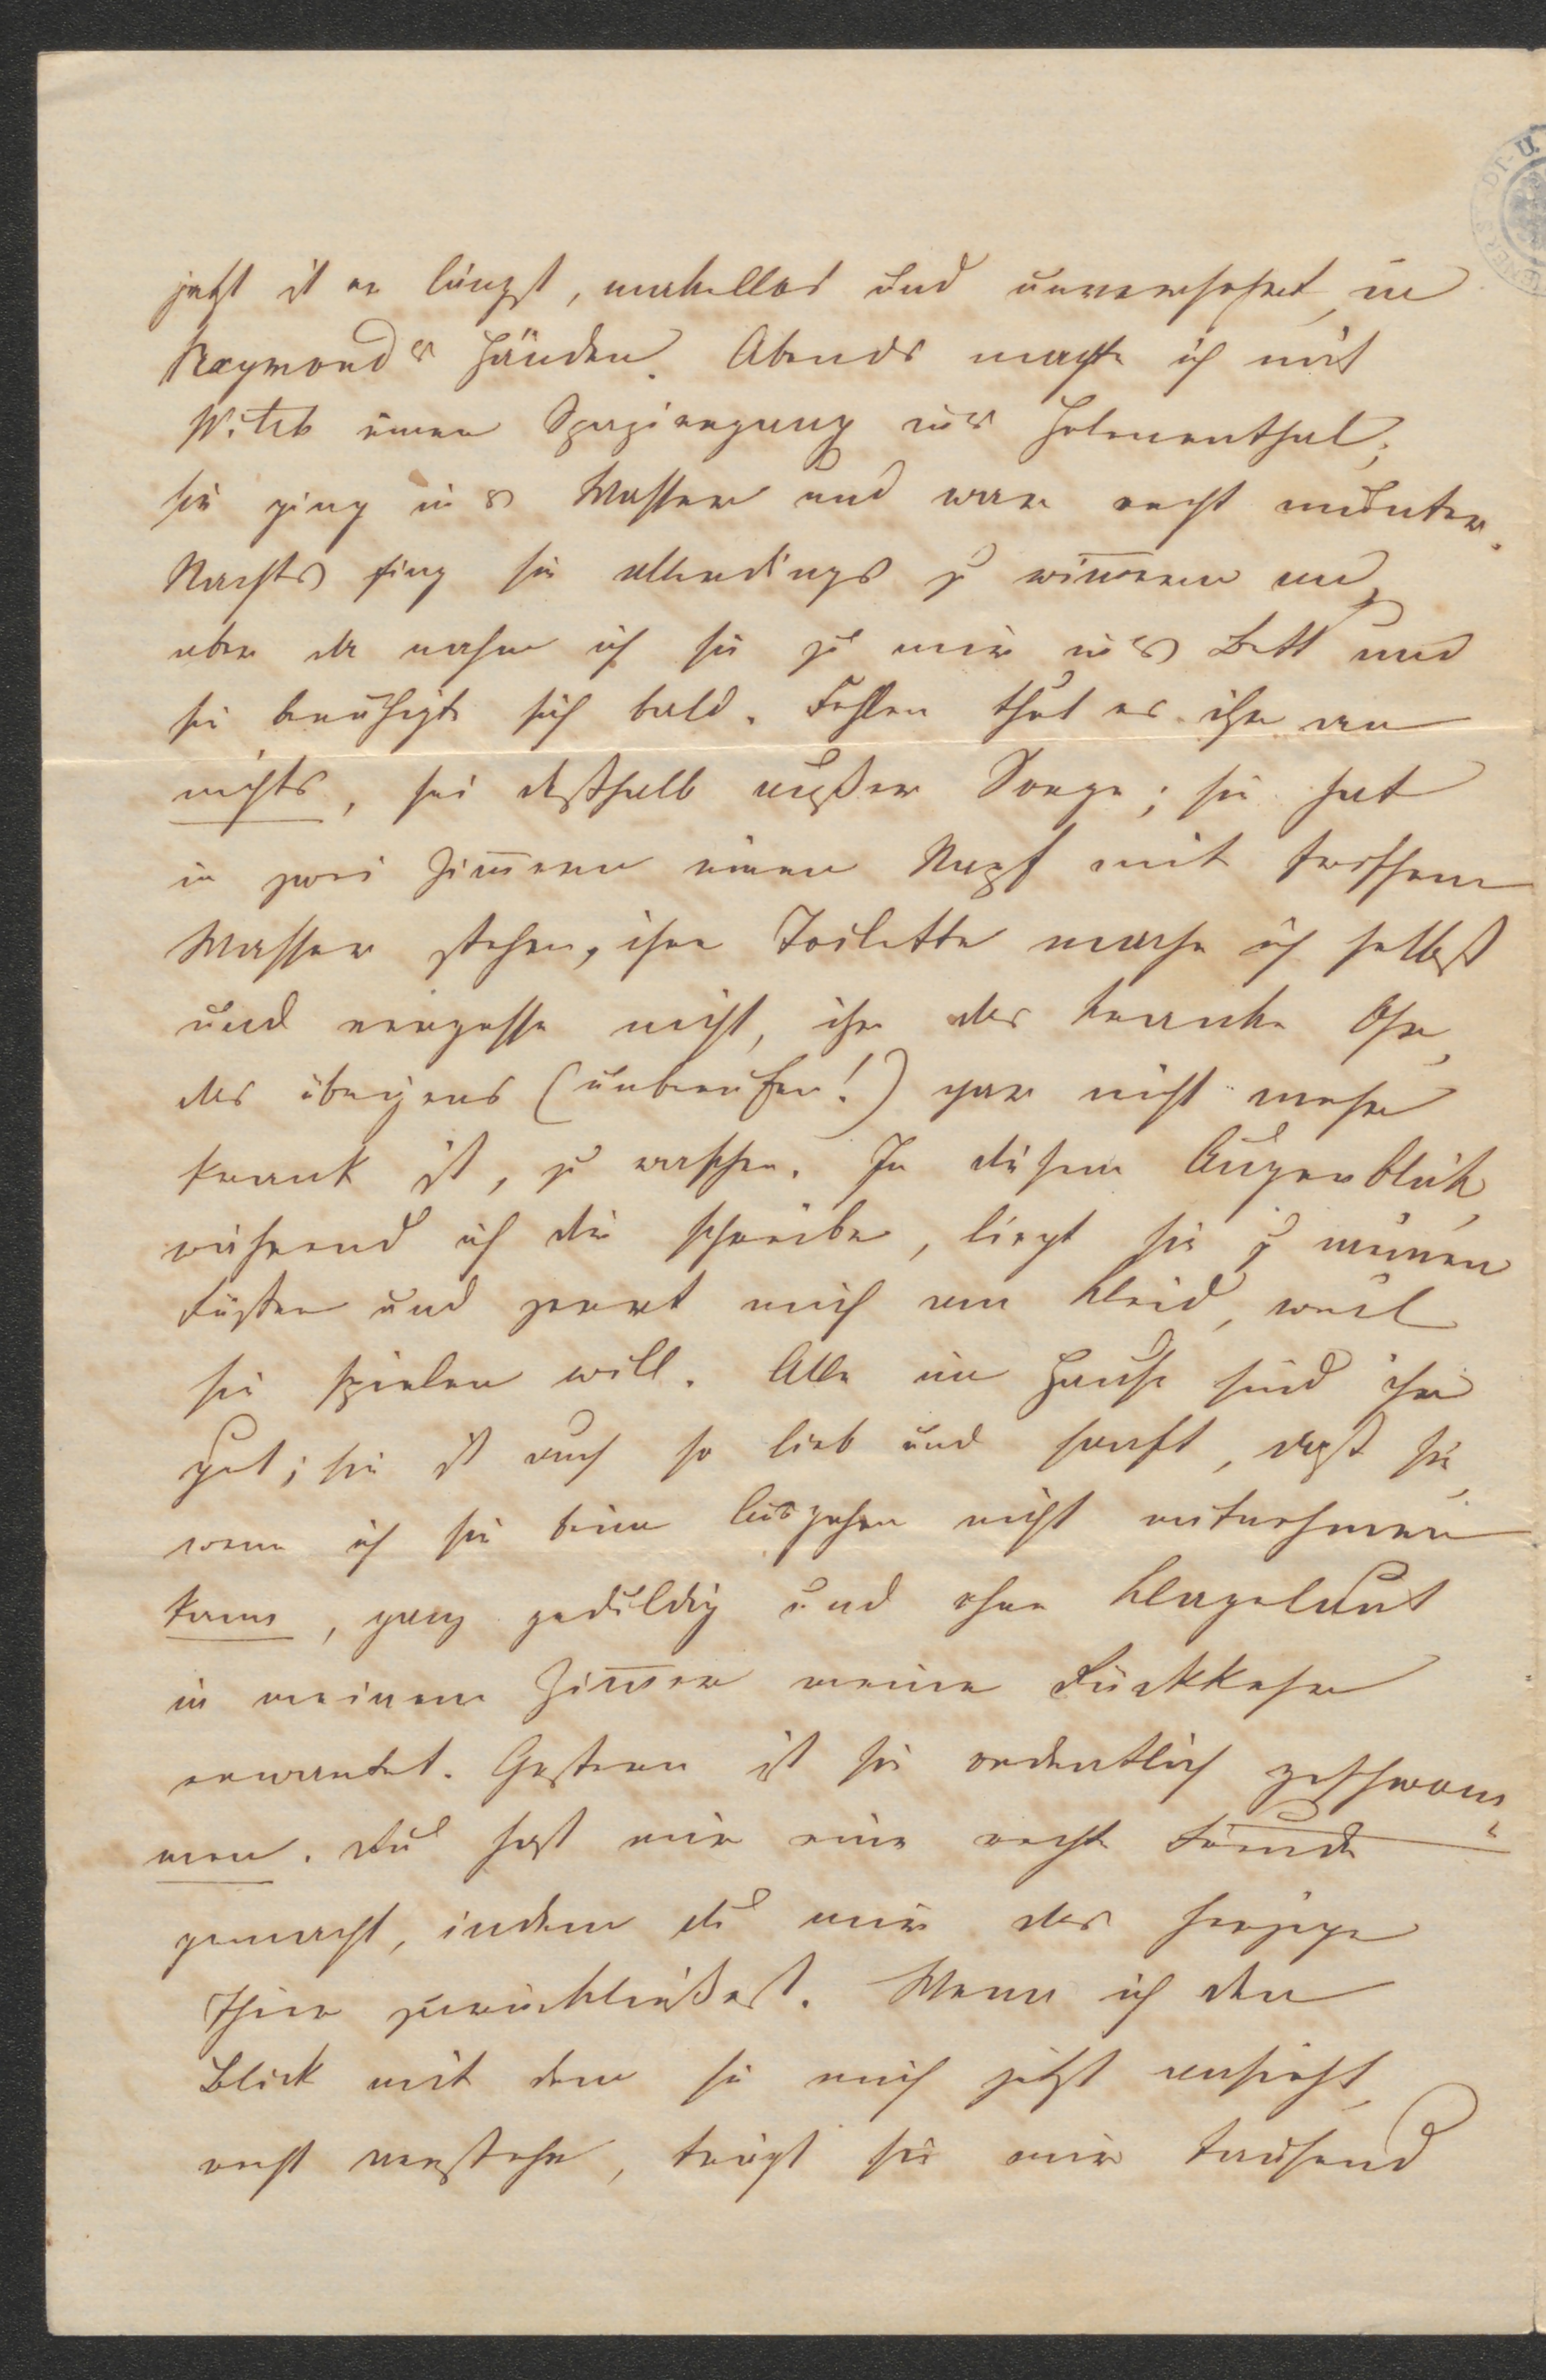 jetzt ist er längst, makellos und unversehrt, in
Raymonds Händen. Abends machte ich mit
einen Spaziergang ins Helenenthal;
sie ging ins Wasser und war recht munter.
Nachts fing sie allerdings zu wim̄ern an,
aber da nahm ich sie zu mir ins Bett und
sie beruhigte sich bald. Fehlen thut es ihr an
nichts, sei desshalb außer Sorge; sie hat
in zwei Zim̄ern einen Napf mit frischem
Wasser stehen, ihre Toilette mache ich selbst
und vergesse nicht, ihr das kranke Ohr,
das übrigens (unberufen!) gar nicht mehr
krank ist, zu waschen. In diesem Augenblick,
während ich dir schreibe, liegt sie zu meinen
Füßen und zerrt mich am Kleid, weil
sie spielen will. Alle im Hause sind ihr
gut; sie ist auch so lieb und sanft, daß sie,
wenn ich sie beim Ausgehen nicht mitnehmen
kann, ganz geduldig und ohne Klagelaut
in meinem Zim̄er meine Rückkehr
erwartet. Gestern ist sie ordentlich geschwom
men. Du hast mir eine rechte Freude
gemacht, indem du mir das herzige
Thier zurückließest. Wenn ich den
Blick mit dem sie mich jetzt ansieht,
recht verstehe, trägt sie mir tausend